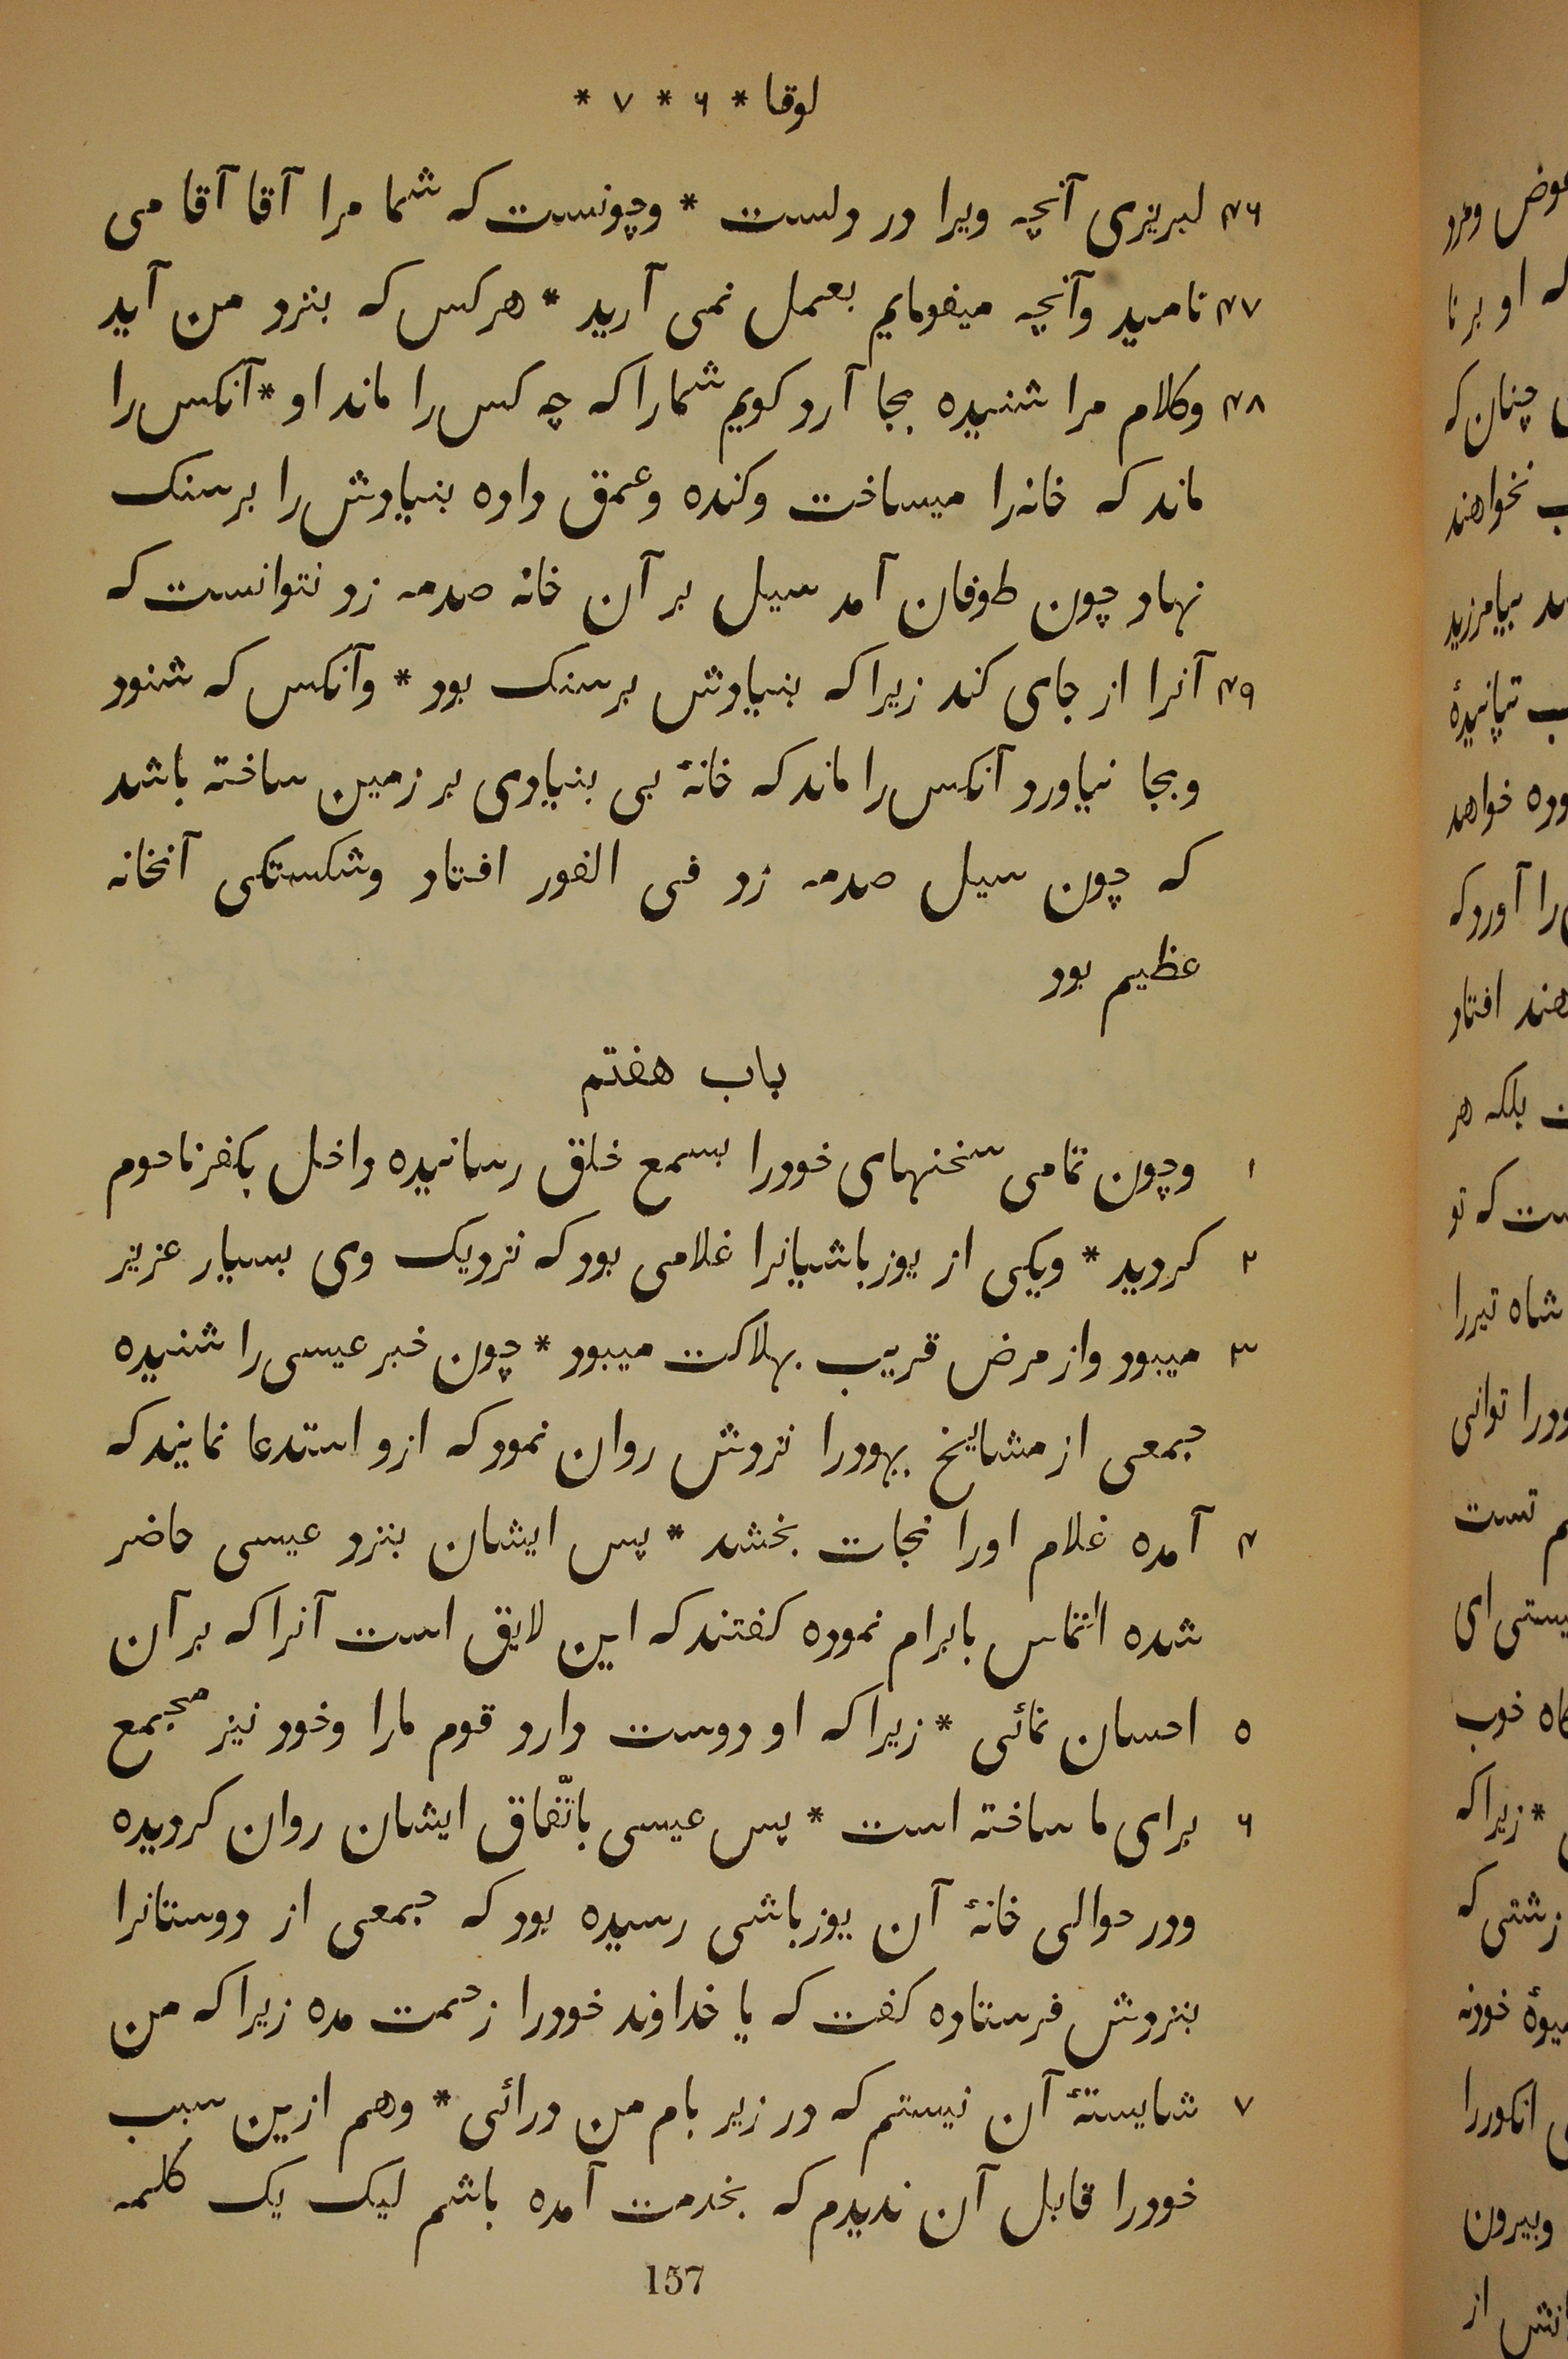 لوقا * ۶ * ۷ *
۴۶ لبریزی آنچه ویرا در دلست * وچونست که شما مرا آقا آقا می
۴۷ نامید وآنچه میفرمایم بعمل نمی آرید * هرکس که بنزد من آید
۴۸ وکلام مرا شنیده بجا آرد کویم شمارا که چه کس را ماند او * آنکس را
ماند که خانه‌را میساخت وکنده وعمق داده بنیادش را برسنک
نهاد چون طوفان آمد سیل بر آن خانه صدمه زد نتوانست که
۴۹ آنرا از جای کند زیرا که بنیادش برسنک بود * وآنکس که شنود
وبجا نیاورد آنکس را ماند که خانهٔ بی بنیادی بر زمین ساخته باشد
که چون سیل صدمه زد فی الفور افتاد وشکستکی آنخانه
عظیم بود
باب هفتم
۱ وچون تمامی سخنهای خودرا بسمع خلق رسانیده داخل بکفرناحوم
۲ کردید * ویکی از یوزباشیانرا غلامی بود که نزدیک وی بسیار عزیز
۳ میبود واز مرض قریب بهلاکت میبود * چون خبر عیسی را شنیده
جمعی از مشایخ یهودرا نزدش روان نمود که ازو استدعا نمایند که
۴ آمده غلام اورا نجات بخشد * پس ایشان بنزد عیسی حاضر
شده التماس بابرام نموده کفتند که این لایق است آنرا که بر آن
۵ احسان نمائی * زیرا که او دوست دارد قوم مارا وخود نیز مجمع
۶ برای ما ساخته است * پس عیسی باتّفاق ایشان روان کردیده
ودر حوالی خانهٔ آن یوزباشی رسیده بود که جمعی از دوستانرا
بنزدش فرستاده کفت که یا خداوند خودرا زحمت مده زیرا که من
۷ شایستهٔ آن نیستم که در زیر بام من درائی * وهم ازین سبب
خودرا قابل آن ندیدم که بخدمت آمده باشم لیک یک کلمه
157